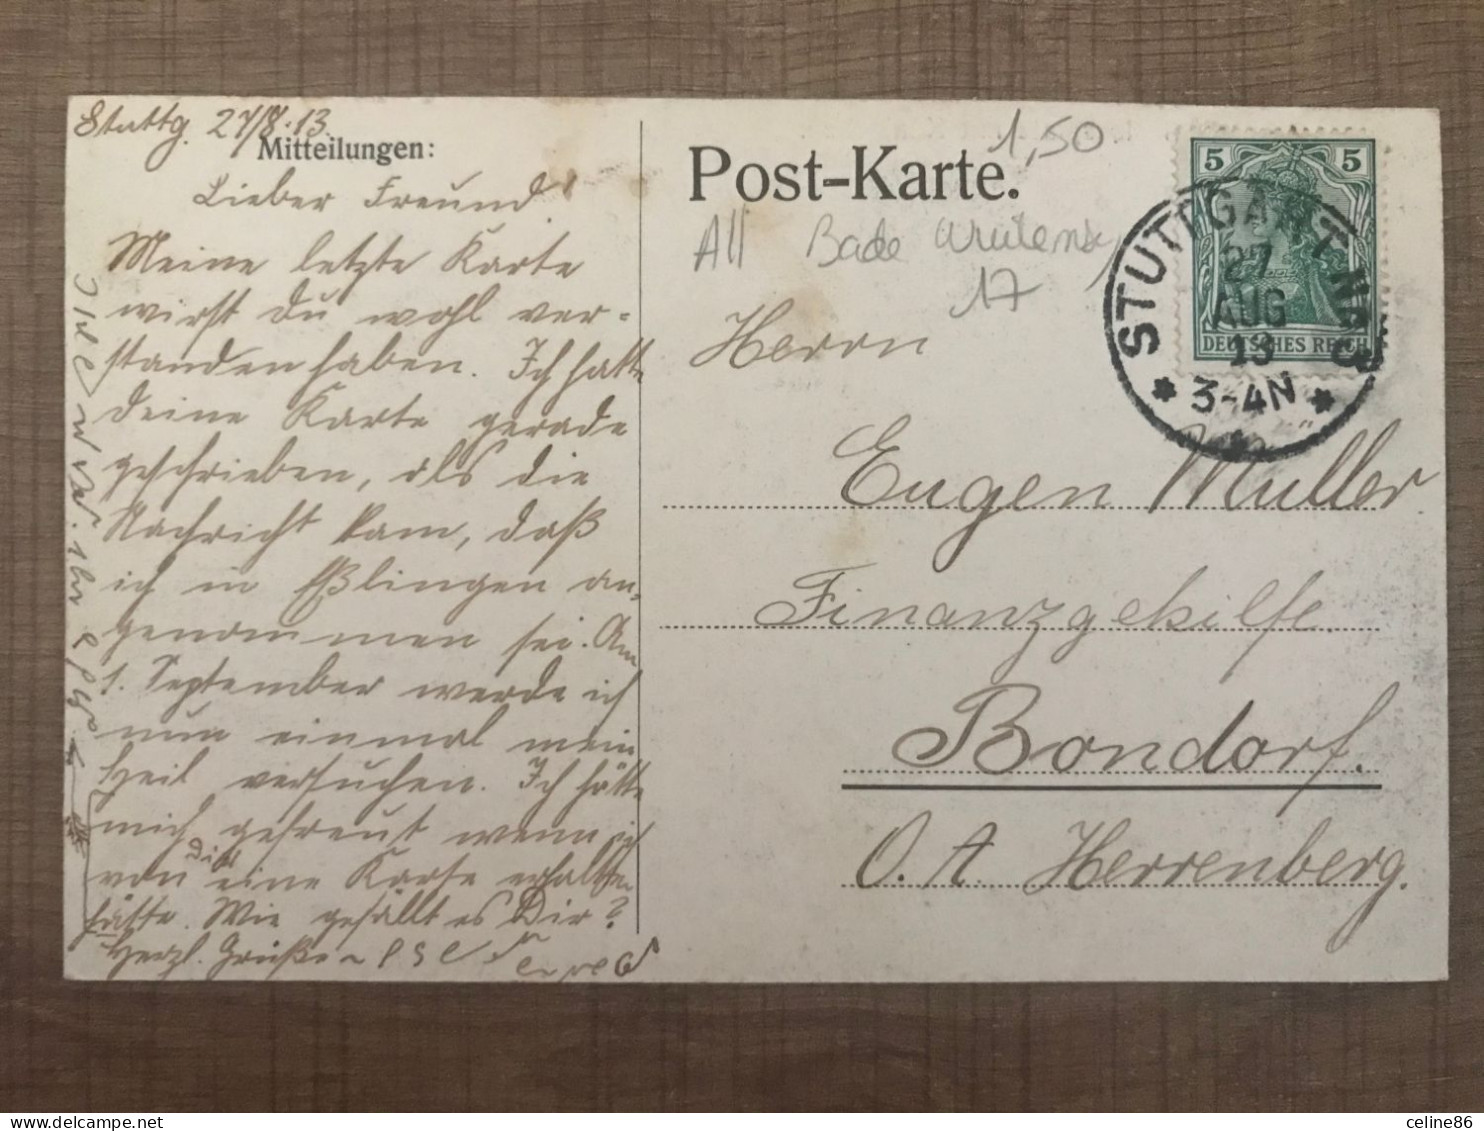 Stuttg. 27/8.13.
Mitteilungen:
Lieber Freund!
Meine letzte Karte
wirst du wohl ver-
standen haben. Ich hatte
deine Karte gerade
geschrieben, als die
Nachricht kam, daß
ich in Eßlingen an-
genommen sei. Am
1. September werde ich
nun einmal mein
Heil versuchen. Ich hätte
mich gefreut wenn ich
von dir eine Karte erhalten
hätte. Wie gefällt es Dir?
Herzl. Grüße
Post-Karte.
1,50
All Bade
17
STUTTGART
27
AUG
13
3-4N
5 5
DEUTSCHES REICH
Herrn
Eugen Müller
Finanzgehilfe.
Bondorf.
O. A. Herrenberg.
delcampe.net
celine86